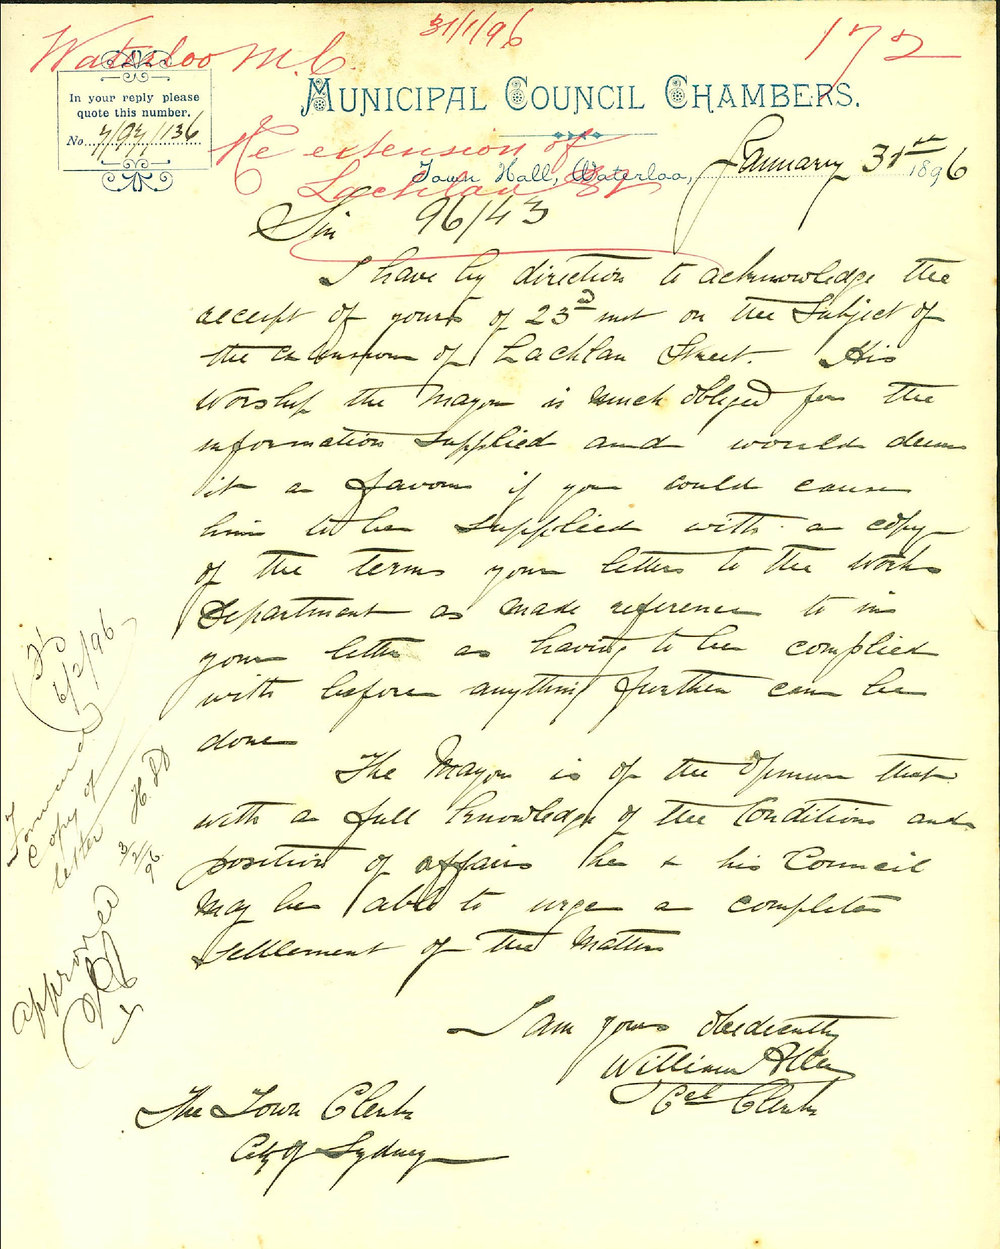 Waterloo M.C.
31/1/96
172
In your reply please
quote this number.
No. 7/97/136
MUNICIPAL COUNCIL CHAMBERS.
Re extension of
Lachlan St
Town Hall, Waterloo, January 31st 1896
Sir 96/43
I have by direction to acknowledge the
receipt of yours of 23rd inst on the subject of
the extension of Lachlan Street. His
Worship the Mayor is much obliged for the
information supplied and would deem
it a favour if you could cause
him to be supplied with a copy
of the terms your letters to the Works
Department as made reference to in
your letter as having to be complied
with before anything further can be
done
The Mayor is of the opinion that
with a full knowledge of the Conditions and
position of affairs he & his Council
may be able to urge a complete
settlement of the matter
I am yours obediently
William Allen
Cel Clerk
The Town Clerk
City of Sydney
6/2/96
Forward
copy of
letter
H.D
3/2/96.
approved